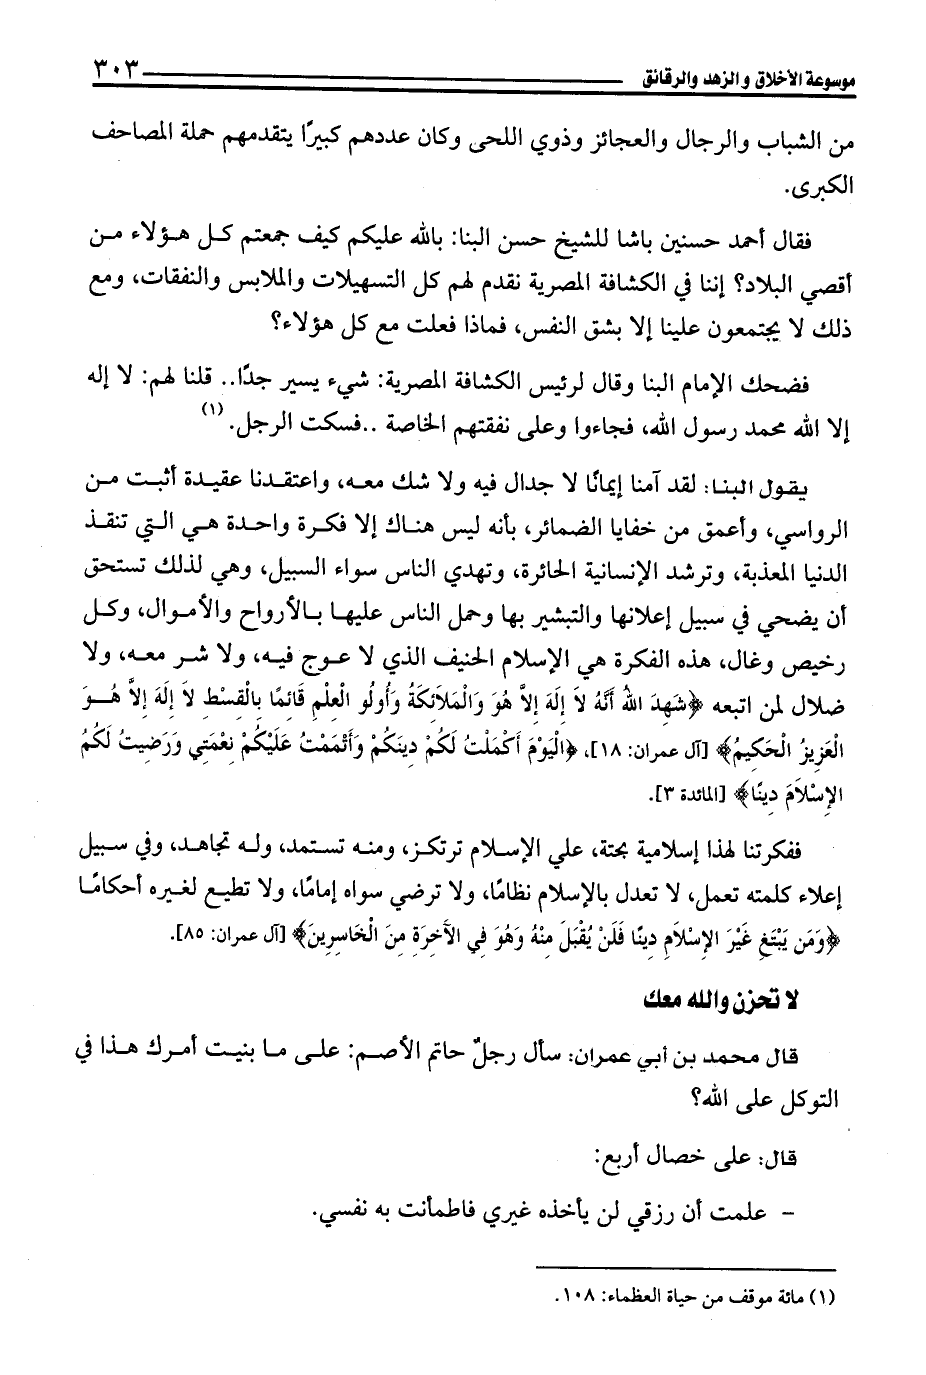 موسوعة الأخلاق والزهد والرقائق ٣٠٣
من الشباب والرجال والعجائز وذوي اللحى وكان عددهم كبيرًا يتقدمهم حملة المصاحف
الكبرى.
فقال أحمد حسنين باشا للشيخ حسن البنا: بالله عليكم كيف جمعتم كل هؤلاء من
أقصي البلاد؟ إننا في الكشافة المصرية نقدم لهم كل التسهيلات والملابس والنفقات، ومع
ذلك لا يجتمعون علينا إلا بشق النفس، فماذا فعلت مع كل هؤلاء؟
فضحك الإمام البنا وقال لرئيس الكشافة المصرية: شيء يسير جدًا.. قلنا لهم: لا إله
إلا الله محمد رسول الله، فجاءوا وعلى نفقتهم الخاصة ..فسكت الرجل. (١)
يقول البنا: لقد آمنا إيمانًا لا جدال فيه ولا شك معه، واعتقدنا عقيدة أثبت من
الرواسي، وأعمق من خفايا الضمائر، بأنه ليس هناك إلا فكرة واحدة هي التي تنقذ
الدنيا المعذبة، وترشد الإنسانية الحائرة، وتهدي الناس سواء السبيل، وهي لذلك تستحق
أن يضحي في سبيل إعلانها والتبشير بها وحمل الناس عليها بالأرواح والأموال، وكل
رخيص وغال، هذه الفكرة هي الإسلام الحنيف الذي لا عوج فيه، ولا شر معه، ولا
ضلال لمن اتبعه ﴿شَهِدَ اللهُ أَنَّهُ لاَ إِلَهَ إِلاَّ هُوَ وَالْمَلاَئِكَةُ وَأُولُو الْعِلْمِ قَائِمًا بِالْقِسْطِ لاَ إِلَهَ إِلاَّ هُوَ
الْعَزِيزُ الْحَكِيمُ﴾ [آل عمران: ١٨]، ﴿الْيَوْمَ أَكْمَلْتُ لَكُمْ دِينَكُمْ وَأَتْمَمْتُ عَلَيْكُمْ نِعْمَتِي وَرَضِيتُ لَكُمُ
الإِسْلاَمَ دِينًا﴾ [المائدة ٣].
ففكرتنا لهذا إسلامية بحتة، علي الإسلام ترتكز، ومنه تستمد، وله تجاهد، وفي سبيل
إعلاء كلمته تعمل، لا تعدل بالإسلام نظامًا، ولا ترضي سواه إمامًا، ولا تطيع لغيره أحكامًا
﴿وَمَن يَبْتَغِ غَيْرَ الإِسْلاَمِ دِينًا فَلَنْ يُقْبَلَ مِنْهُ وَهُوَ فِي الآخِرَةِ مِنَ الْخَاسِرِينَ﴾ [آل عمران: ٨٥].
لا تحزن والله معك
قال محمد بن أبي عمران: سأل رجلٌ حاتم الأصم: على ما بنيت أمرك هذا في
التوكل على الله؟
قال: على خصال أربع:
- علمت أن رزقي لن يأخذه غيري فاطمأنت به نفسي.
(١) مائة موقف من حياة العظماء: ١٠٨.